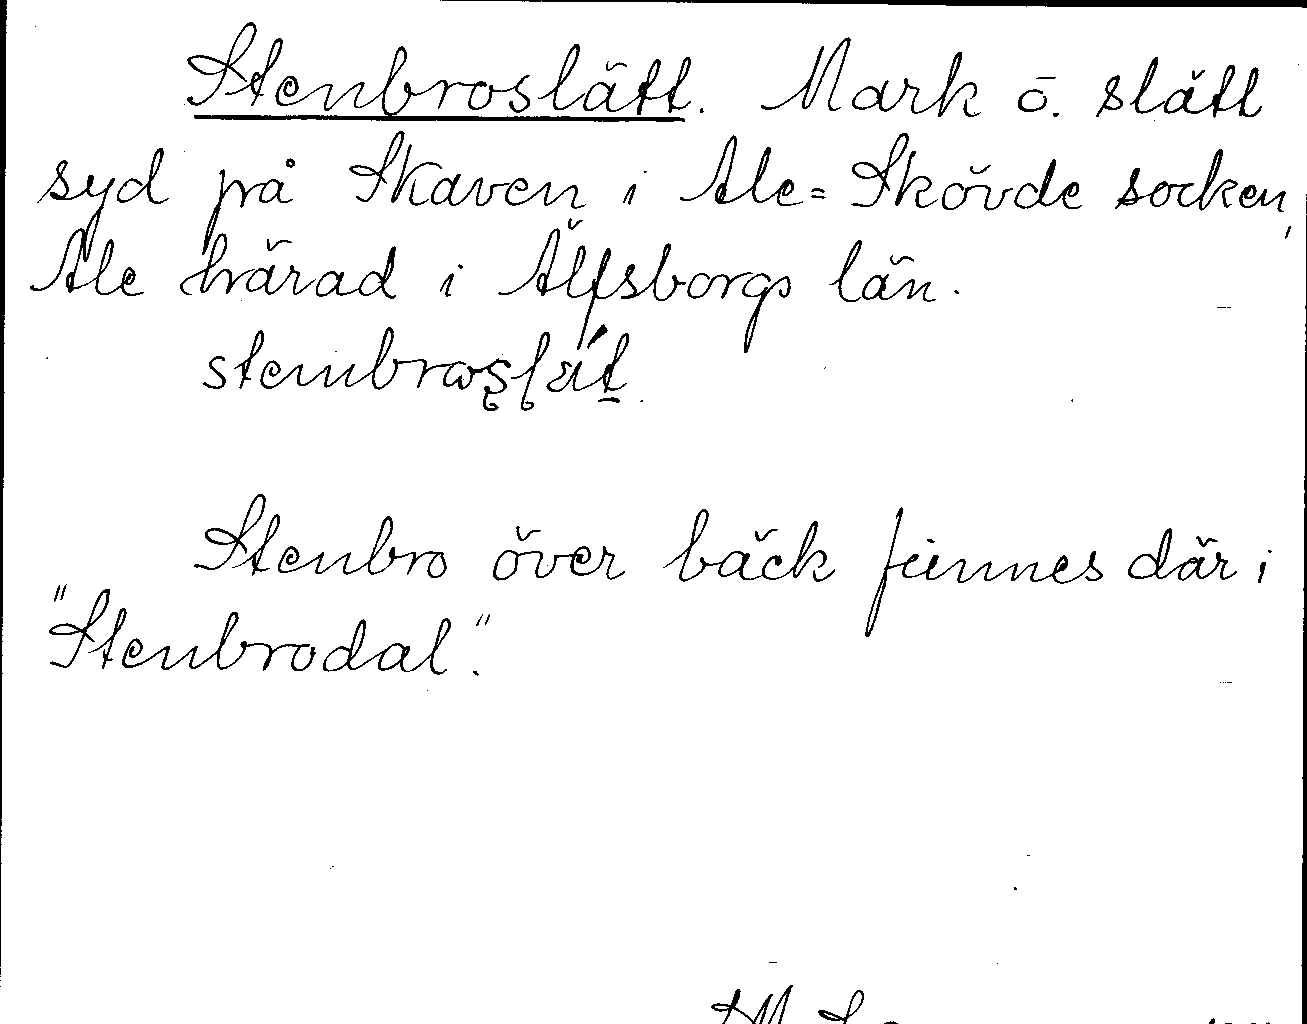 Stenbroslätt. Mark o. slätt
syd på Skaven i Ale=Skövde socken,
Ale härad i Älfsborgs län.
Stenbro över bäck finnes där i
"Stenbrodal".